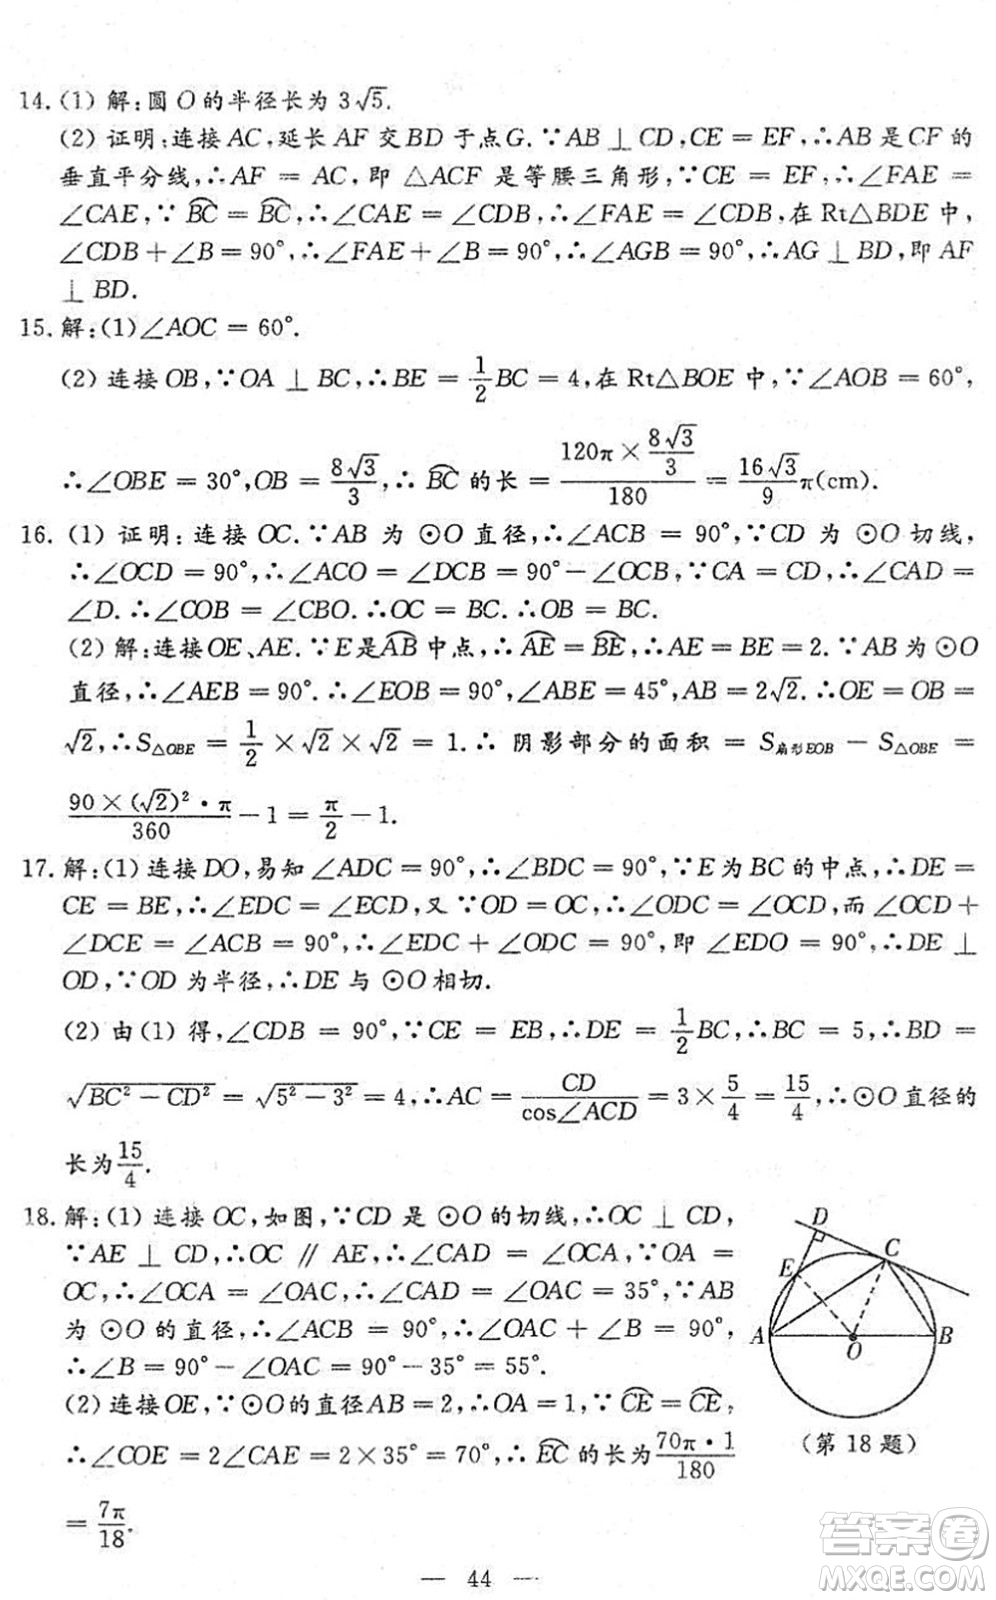 14. (1) 解:圆 O 的半径长为 3√5.
(2) 证明:连接 AC,延长 AF 交 BD 于点 G. ∵AB ⊥ CD,CE = EF,∴AB 是 CF 的
垂直平分线,∴AF = AC,即 △ACF 是等腰三角形,∵CE = EF,∴∠FAE =
∠CAE,∵ B͡C = B͡C,∴∠CAE = ∠CDB,∴∠FAE = ∠CDB,在 Rt△BDE 中,
∠CDB + ∠B = 90°,∴∠FAE + ∠B = 90°,∴∠AGB = 90°,∴AG ⊥ BD,即 AF
⊥ BD.
15. 解:(1)∠AOC = 60°.
(2) 连接 OB,∵OA ⊥ BC,∴BE = 1/2 BC = 4,在 Rt△BOE 中,∵∠AOB = 60°,
∴∠OBE = 30°,OB = 8√3/3,∴ B͡C 的长 = (120π × 8√3/3)/180 = 16√3/9 π(cm).
16. (1) 证明:连接 OC. ∵AB 为 ⊙O 直径,∴∠ACB = 90°,∵CD 为 ⊙O 切线,
∴∠OCD = 90°,∴∠ACO = ∠DCB = 90° − ∠OCB,∵CA = CD,∴∠CAD =
∠D. ∴∠COB = ∠CBO. ∴OC = BC. ∴OB = BC.
(2) 解:连接OE、AE. ∵E是A͡B 中点,∴A͡E = B͡E,∴AE = BE = 2. ∵AB为⊙O
直径,∴∠AEB = 90°. ∴∠EOB = 90°,∠ABE = 45°,AB = 2√2. ∴OE = OB =
√2,∴S△OBE = 1/2 × √2 × √2 = 1. ∴ 阴影部分的面积 = S扇形EOB − S△OBE =
90 × (√2)² · π/360 − 1 = π/2 − 1.
17. 解:(1) 连接 DO,易知 ∠ADC = 90°,∴∠BDC = 90°,∵E 为 BC 的中点,∴DE =
CE = BE,∴∠EDC = ∠ECD,又 ∵OD = OC,∴∠ODC = ∠OCD,而 ∠OCD +
∠DCE = ∠ACB = 90°,∴∠EDC + ∠ODC = 90°,即 ∠EDO = 90°,∴DE ⊥
OD,∵OD 为半径,∴DE 与 ⊙O 相切.
(2) 由 (1) 得,∠CDB = 90°,∵CE = EB,∴DE = 1/2 BC,∴BC = 5,∴BD =
√(BC² − CD²) = √(5² − 3²) = 4,∴AC = CD/cos∠ACD = 3 × 5/4 = 15/4,∴⊙O 直径的
长为 15/4.
18. 解:(1) 连接 OC,如图,∵CD 是 ⊙O 的切线,∴OC ⊥ CD,
∵AE ⊥ CD,∴OC // AE,∴∠CAD = ∠OCA,∵OA =
OC,∴∠OCA = ∠OAC,∴∠CAD = ∠OAC = 35°,∵AB
为 ⊙O 的直径,∴∠ACB = 90°,∴∠OAC + ∠B = 90°,
∴∠B = 90° − ∠OAC = 90° − 35° = 55°.
(2) 连接OE,∵⊙O的直径AB = 2,∴OA = 1,∵ C͡E = C͡E,
∴∠COE = 2∠CAE = 2×35° = 70°,∴ E͡C 的长为 70π · 1/180
= 7π/18.
D
C
E
A
O
B
(第 18 题)
答案卷
MXQE.COM
— 44 —